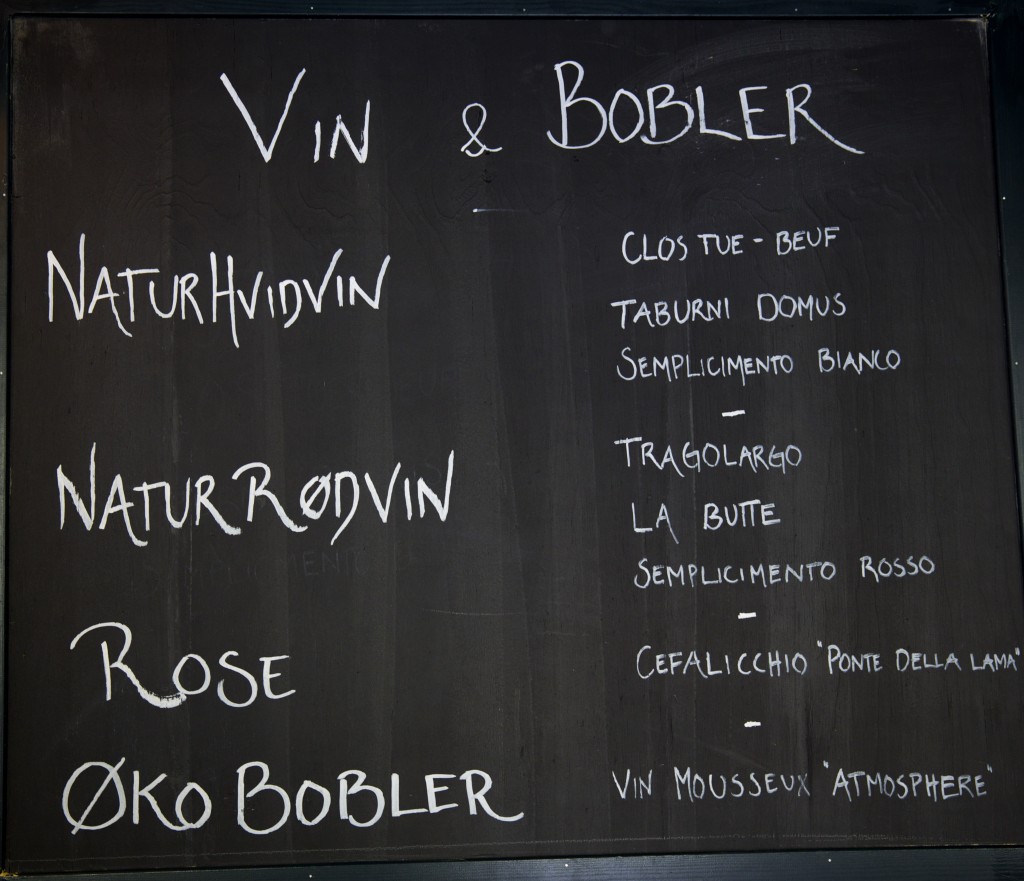 VIN & BOBLER
NATURHVIDVIN
CLOS TUE-BEUF
TABURNI DOMUS
SEMPLICIMENTO BIANCO
NATURRØDVIN
TRAGOLARGO
LA BUTTE
SEMPLICIMENTO ROSSO
ROSE
CEFALICCHIO "PONTE DELLA LAMA"
ØKO BOBLER
VIN MOUSSEUX "ATMOSPHERE"